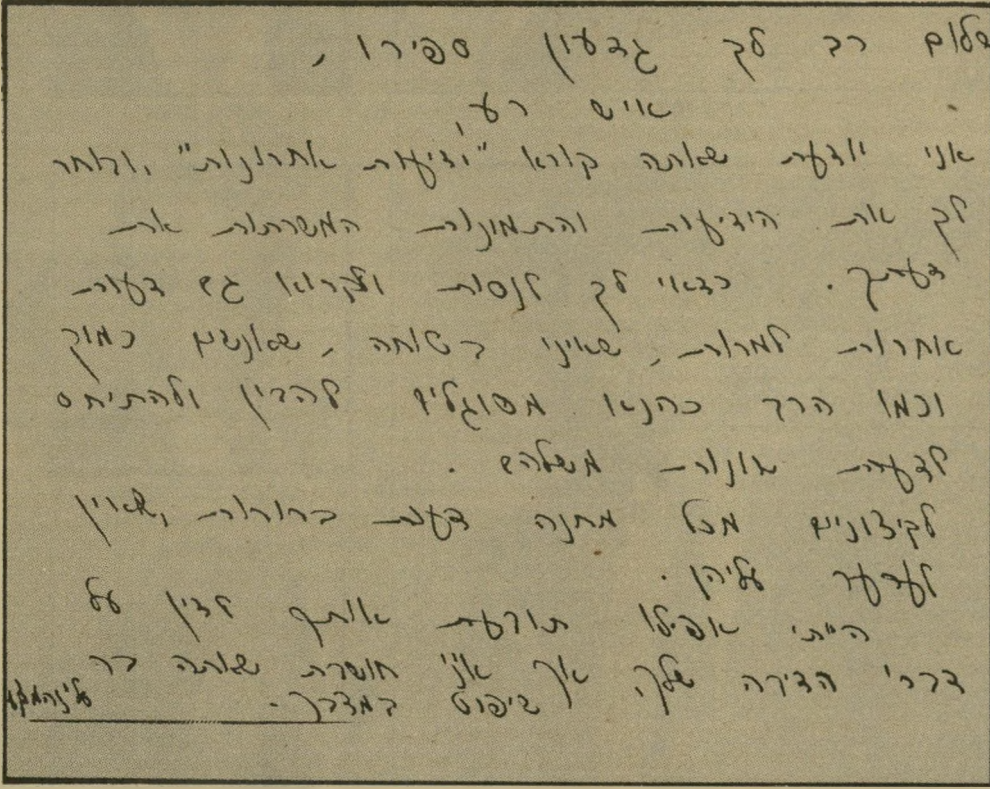 שלום רב לך גדעון ספירו,
איש רע,
אני יודעת שאתה קורא "ידיעות אחרונות", ובוחר
לך את הידיעות והתמונות המשרתות את
דעתך. כדאי לך לנסות ולקרוא גם דעות
אחרות למרות, שאיני בטוחה, שאנשים כמוך
וכמו הרב כהנא מסוגלים להבין ולהתיחס
לדעות שונות משלהם.
לקיצונים מכל מחנה דעות ברורות, שאין
לערער עליהן.
הייתי אפילו תובעת אותך לדין על
דברי הדיבה שלך, אך אני חוששת שאתה בר
שיפוט במצבך.